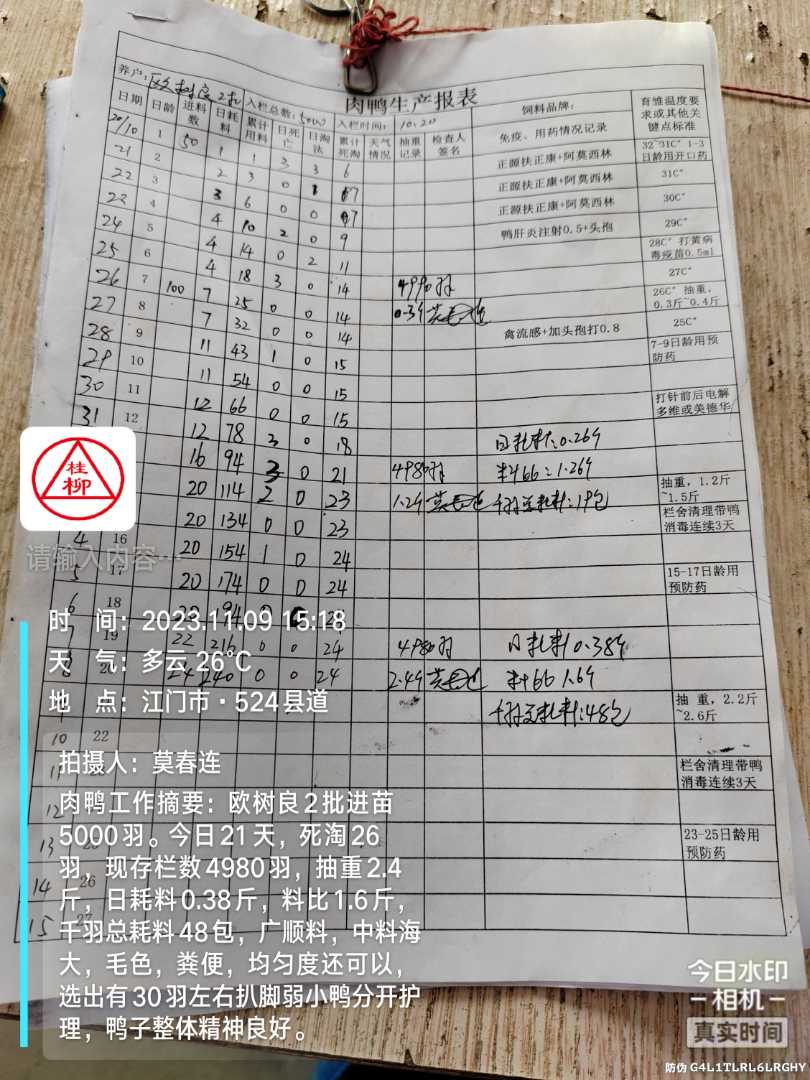 肉鸭生产报表
养户:欧树良2批 入栏总数:5000 入栏时间:10.20 饲料品牌: 育雏温度要求或其他关键点标准
日期 日龄 进料数 日耗料 累计用料 日死亡 日淘汰 累计死淘 天气情况 抽重记录 检查人签名 免疫、用药情况记录
20/10 1 50 1 1 3 3 6 正源扶正康+阿莫西林 32~31C° 1-3日龄用开口药
21 2 2 3 0 1 7 正源扶正康+阿莫西林 31C°
22 3 3 6 0 0 7 正源扶正康+阿莫西林 30C°
23 4 4 10 2 0 9 鸭肝炎注射0.5+头孢 29C°
24 5 4 14 0 2 11 28C° 打黄病毒疫苗0.5ml
25 6 4 18 3 0 14 4990羽 27C°
26 7 100 7 25 0 0 14 26C° 抽重,0.3斤~0.4斤
27 8 7 32 0 0 14 禽流感+加头孢打0.8 25C°
28 9 11 43 1 0 15 7-9日龄用预防药
29 10 11 54 0 0 15
30 11 12 66 0 0 15 打针前后电解多维或美德华
31 12 12 78 3 0 18 日耗料:0.26斤
16 94 3 0 21 4980羽 料比:1.26斤
20 114 2 0 23 1.2斤 千羽总耗料:19包 抽重,1.2斤~1.5斤
20 134 0 0 23 栏舍清理带鸭消毒连续3天
4 16 20 154 1 0 24
5 17 20 174 0 0 24 15-17日龄用预防药
6 18 20 194 0
7 19 22 216 0 0 24 4980羽 日耗料0.38斤
8 20 24 240 0 0 24 2.4斤 料比1.6斤
9 千羽总耗料:48包 抽重,2.2斤~2.6斤
10 22
11 栏舍清理带鸭消毒连续3天
12
13 23-25日龄用预防药
14 26
15 27
桂柳
请输入内容…
时 间:2023.11.09 15:18
天 气:多云 26℃
地 点:江门市·524县道
拍摄人:莫春连
肉鸭工作摘要:欧树良2批进苗
5000羽。今日21天,死淘26
羽,现存栏数4980羽,抽重2.4
斤,日耗料0.38斤,料比1.6斤,
千羽总耗料48包,广顺料,中料海
大,毛色,粪便,均匀度还可以,
选出有30羽左右扒脚弱小鸭分开护
理,鸭子整体精神良好。
今日水印
相机
真实时间
防伪 G4L1TLRL6LRGHY